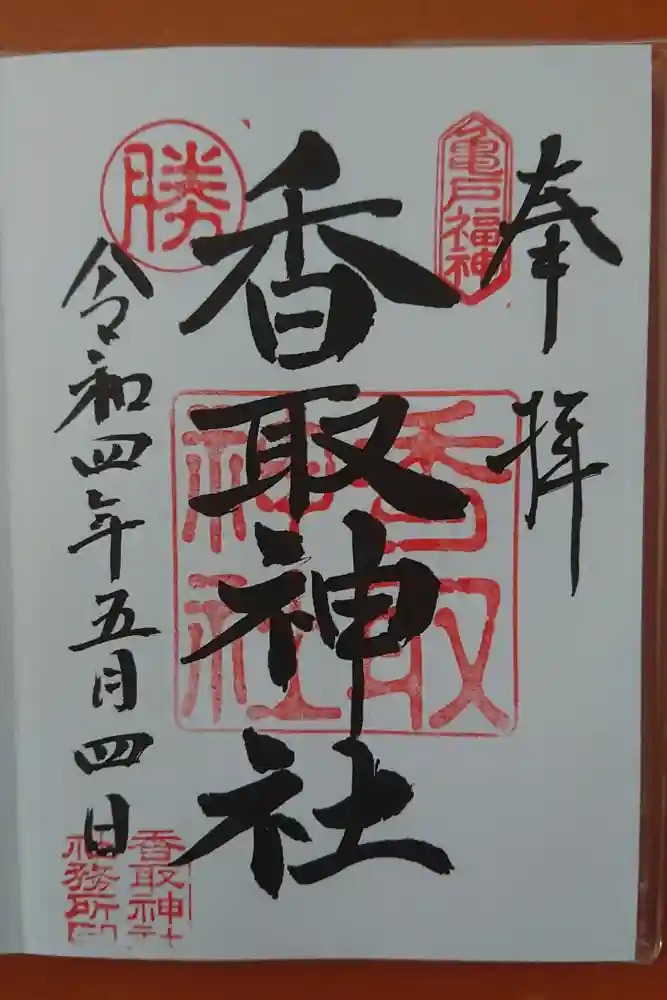 奉拝
亀戸福神
香取神社
香取神社
勝
令和四年五月四日
香取神社
社務所印